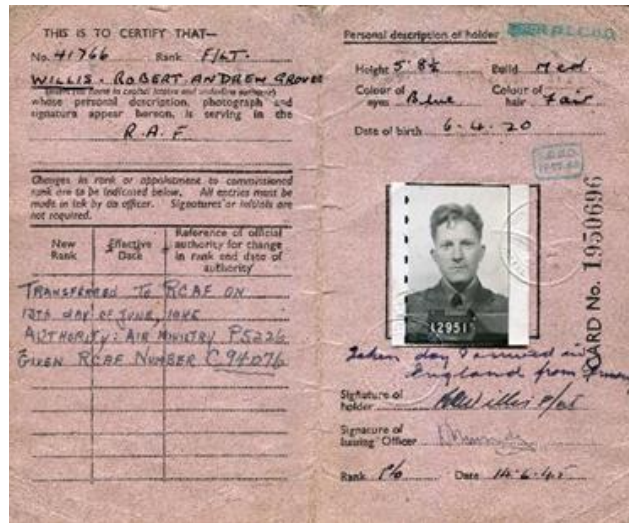 THIS IS TO CERTIFY THAT—
No. 41766 Rank F/LT.
WILLIS. ROBERT. ANDREW GROVER
(Insert full name in capital letters and underline surname)
whose personal description, photograph and
signature appear hereon, is serving in the
R.A.F
Changes in rank or appointment to commissioned
rank are to be indicated below. All entries must be
made in ink by an officer. Signatures or initials are
not required.
New
Rank
Effective
Date
Reference of official
authority for change
in rank and date of
authority
TRANSFERRED TO RCAF ON
13TH DAY OF JUNE, 1945
AUTHORITY: AIR MINISTRY P5226
GIVEN RCAF NUMBER C94076
Personal description of holder
Height 5' 8½ Build Med.
Colour of
eyes Blue
Colour of
hair Fair
Date of birth 6-4-20
12951
CARD No. 1950696
Taken day I arrived in
England from
Signature of
holder RAWillis F/Lt
Signature of
Issuing Officer
Rank P/O Date 14-6-45